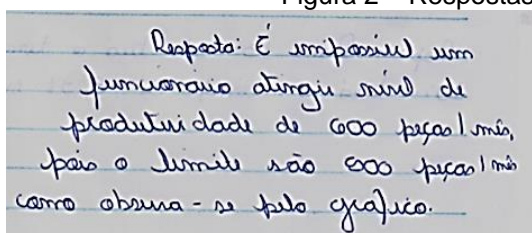 Figura 2 – Respostas
Resposta: É impossível um
funcionário atingir nível de
produtividade de 600 peças/mês,
pois o limite são 500 peças/mês
como observa-se pelo gráfico.